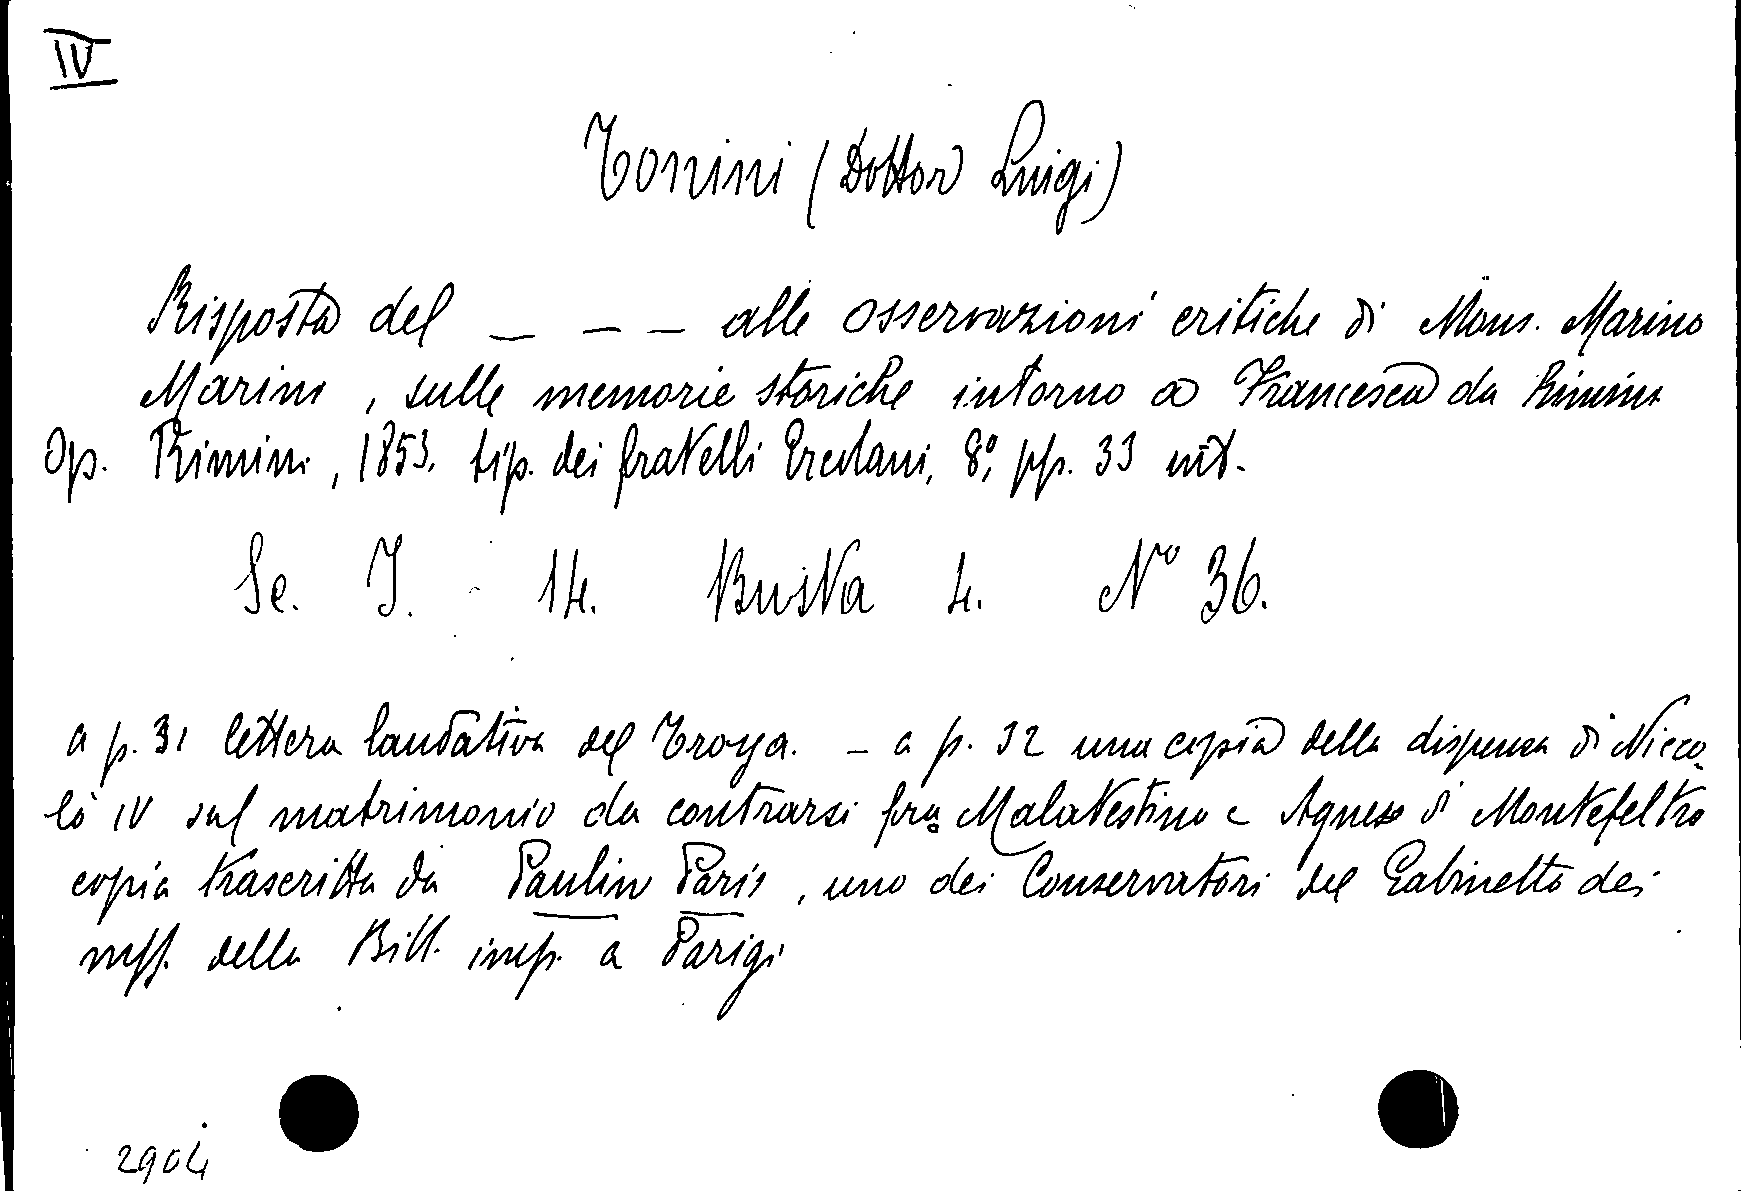 IV
Tonini (Dottor Luigi)
Risposta del _ _ _ alle osservazioni critiche di Mons. Marino
Marini, sulle memorie storiche intorno a Francesca da Rimini
Op. Rimini, 1853. tip. dei fratelli Ercolani, 8º, pp. 33 int.
Se. I. 14. Busta 4. Nº 36.
a p. 31 lettera laudativa del Troya. - a p. 32 una copia della dispensa di Nicco-
lò IV sul matrimonio da contrarsi fra Malatestino e Agnese di Montefeltro
copia trascritta da Paulin Paris, uno dei Conservatori del Gabinetto dei
mss. della Bibl. imp. a Parigi
2904